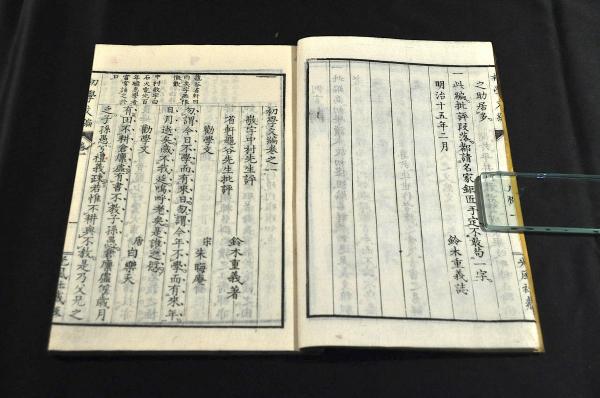 之助居多
一此編批評段落都請名家鉅匠手定不敢苟一字
明治十五年二月
鈴木重義誌
初學文編卷之一
敬宇中村先生評
省軒龜谷先生批評
鈴木重義著
勸學文
宋 朱晦庵
勿謂今日不學而有來日勿謂今年不學而有來年
日月逝矣歲不我延嗚呼老矣是誰之愆
勸學文
唐 白樂天
有田不耕倉廩虛有書不教子孫愚倉廩虛兮歲月
乏子孫愚兮禮義疎若惟不耕與不教是乃父兄之
初學文編 卷一